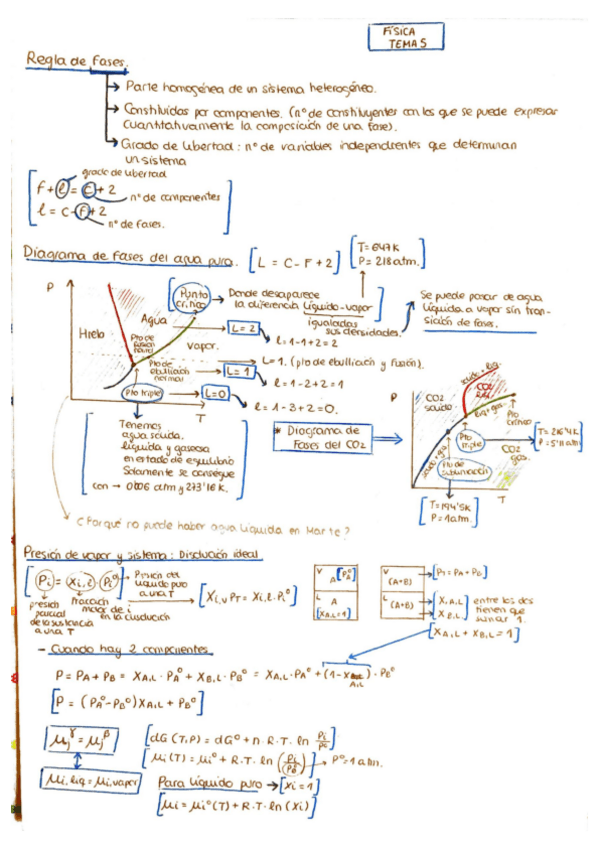 FÍSICA
TEMA 5
Regla de Fases.
Parte homogénea de un sistema heterogéneo.
Constituidas por componentes. (nº de constituyentes con los que se puede expresar
cuantitativamente la composición de una fase).
Grado de libertad: nº de variables independientes que determinan
un sistema
grado de libertad
F + l = C + 2
nº de componentes
l = C - F + 2
nº de fases.
Diagrama de fases del agua pura. [L = C - F + 2]
T = 647 K
P = 218 atm.
P
Punto crítico
Donde desaparece
la diferencia líquido-vapor
igualadas
sus densidades.
Se puede pasar de agua
líquida a vapor sin tran-
sición de fases.
Hielo
Agua
Pto de fusión normal
vapor.
L = 2
l = 1-1+2 = 2
L = 1. (pto de ebullición y fusión).
Pto de ebullición normal
L = 1
l = 1-2+2 = 1
Pto triple
L = 0
T
l = 1-3+2 = 0.
Tenemos
agua sólida,
líquida y gaseosa
en estado de equilibrio
Solamente se consigue
con → 0'006 atm y 273'16 K.
* Diagrama de
Fases del CO2
P
CO2
sólido
sólido + líq.
CO2
líq + gas
Pto crítico
Pto triple
CO2
gas.
sólido + gas
Pto de sublimación
T
P = 5'11 atm
T = 194'5 K
P = 1 atm.
¿Por qué no puede haber agua líquida en Marte?
Presión de vapor y sistema: Disolución ideal
Pi = xi,l · Piº
Presión del
líquido puro
a una T
presión
parcial
de la sustancia
a una T
fracción
molar de i
en la disolución
[Xi,v PT = Xi,l · Piº]
V
A
[PAº]
L
A
[XA,L = 1]
V
(A+B)
[PT = PA + PB]
L
(A+B)
XA,L
XB,L
entre los dos
tienen que
sumar 1.
[XA,L + XB,L = 1]
- Cuando hay 2 componentes
P = PA + PB = XA,L · PAº + XB,L · PBº = XA,L · PAº + (1 - XA,L) · PBº
[P = (PAº - PBº) XA,L + PBº]
μjγ = μjβ
dG (T,P) = dGº + n · R · T · ln Pi/Pº
μi (T) = μiº + R · T · ln (Pi/Pº)
Pº = 1 atm.
μi,liq = μi,vapor
Para líquido puro → [xi = 1]
[μi = μiº (T) + R · T · ln (xi)]